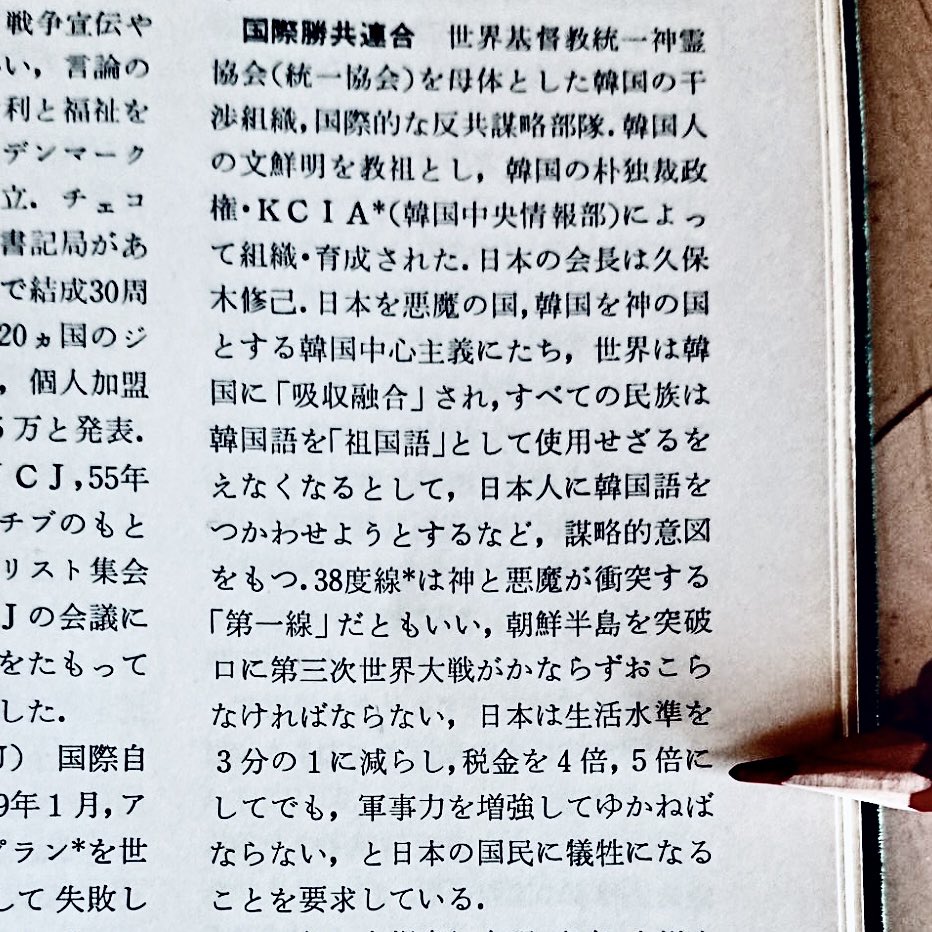 戦争宣伝や
い，言論の
利と福祉を
デンマーク
立．チェコ
書記局があ
で結成30周
20ヵ国のジ
，個人加盟
5万と発表．
ＣＪ，55年
チブのもと
リスト集会
Ｊの会議に
をたもって
した．
Ｊ）　国際自
9年１月，ア
プラン*を世
して失敗し
国際勝共連合　世界基督教統一神霊
協会（統一協会）を母体とした韓国の干
渉組織，国際的な反共謀略部隊．韓国人
の文鮮明を教祖とし，韓国の朴独裁政
権・ＫＣＩＡ*（韓国中央情報部）によっ
て組織・育成された．日本の会長は久保
木修己．日本を悪魔の国，韓国を神の国
とする韓国中心主義にたち，世界は韓
国に「吸収融合」され，すべての民族は
韓国語を「祖国語」として使用せざるを
えなくなるとして，日本人に韓国語を
つかわせようとするなど，謀略的意図
をもつ．38度線*は神と悪魔が衝突する
「第一線」だともいい，朝鮮半島を突破
口に第三次世界大戦がかならずおこら
なければならない，日本は生活水準を
３分の１に減らし，税金を４倍，５倍に
してでも，軍事力を増強してゆかねば
ならない，と日本の国民に犠牲になる
ことを要求している．